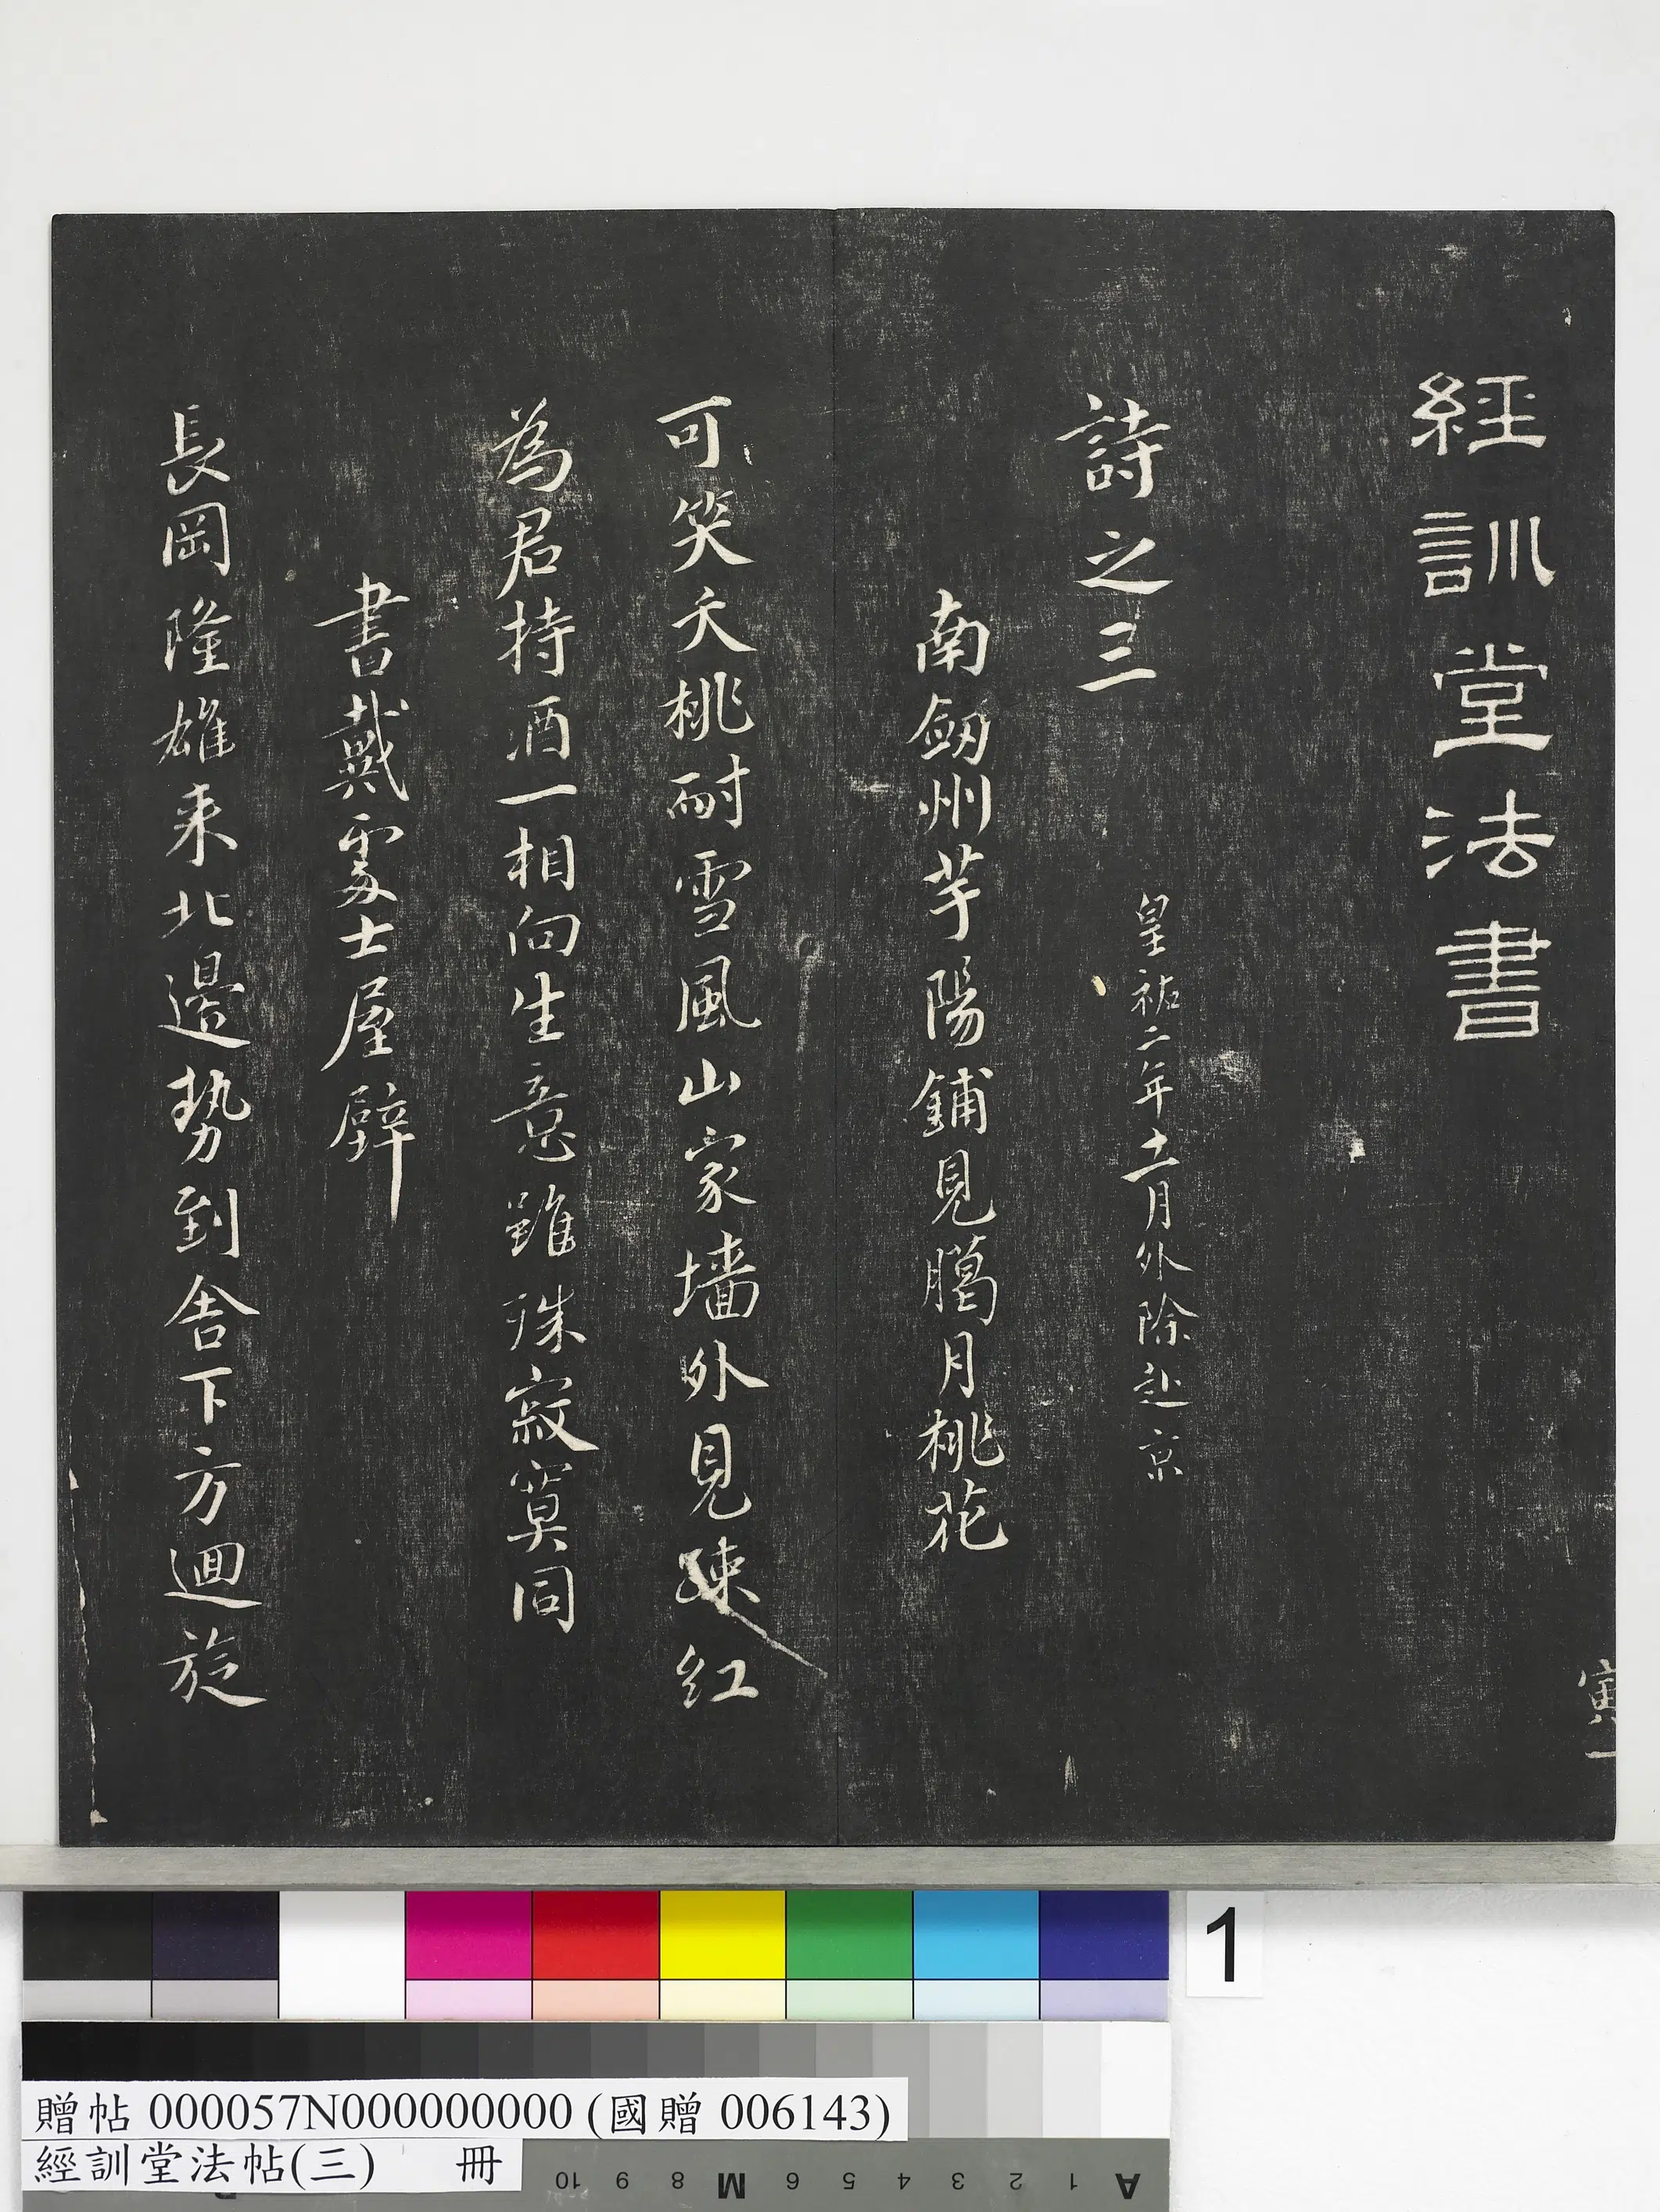 經訓堂法書
寅一
詩之三
皇祐二年十一月外除赴京
南劒州芋陽鋪見臈月桃花
可笑夭桃耐雪風山家墻外見踈紅
為君持酒一相向生意雖殊寂寞同
書戴䖏士屋壁
長岡隆雄来北邉勢到舎下方迴旋
1
贈帖 000057N000000000 (國贈 006143)
經訓堂法帖(三) 冊
10 9 8 M 6 5 4 3 2 1 A